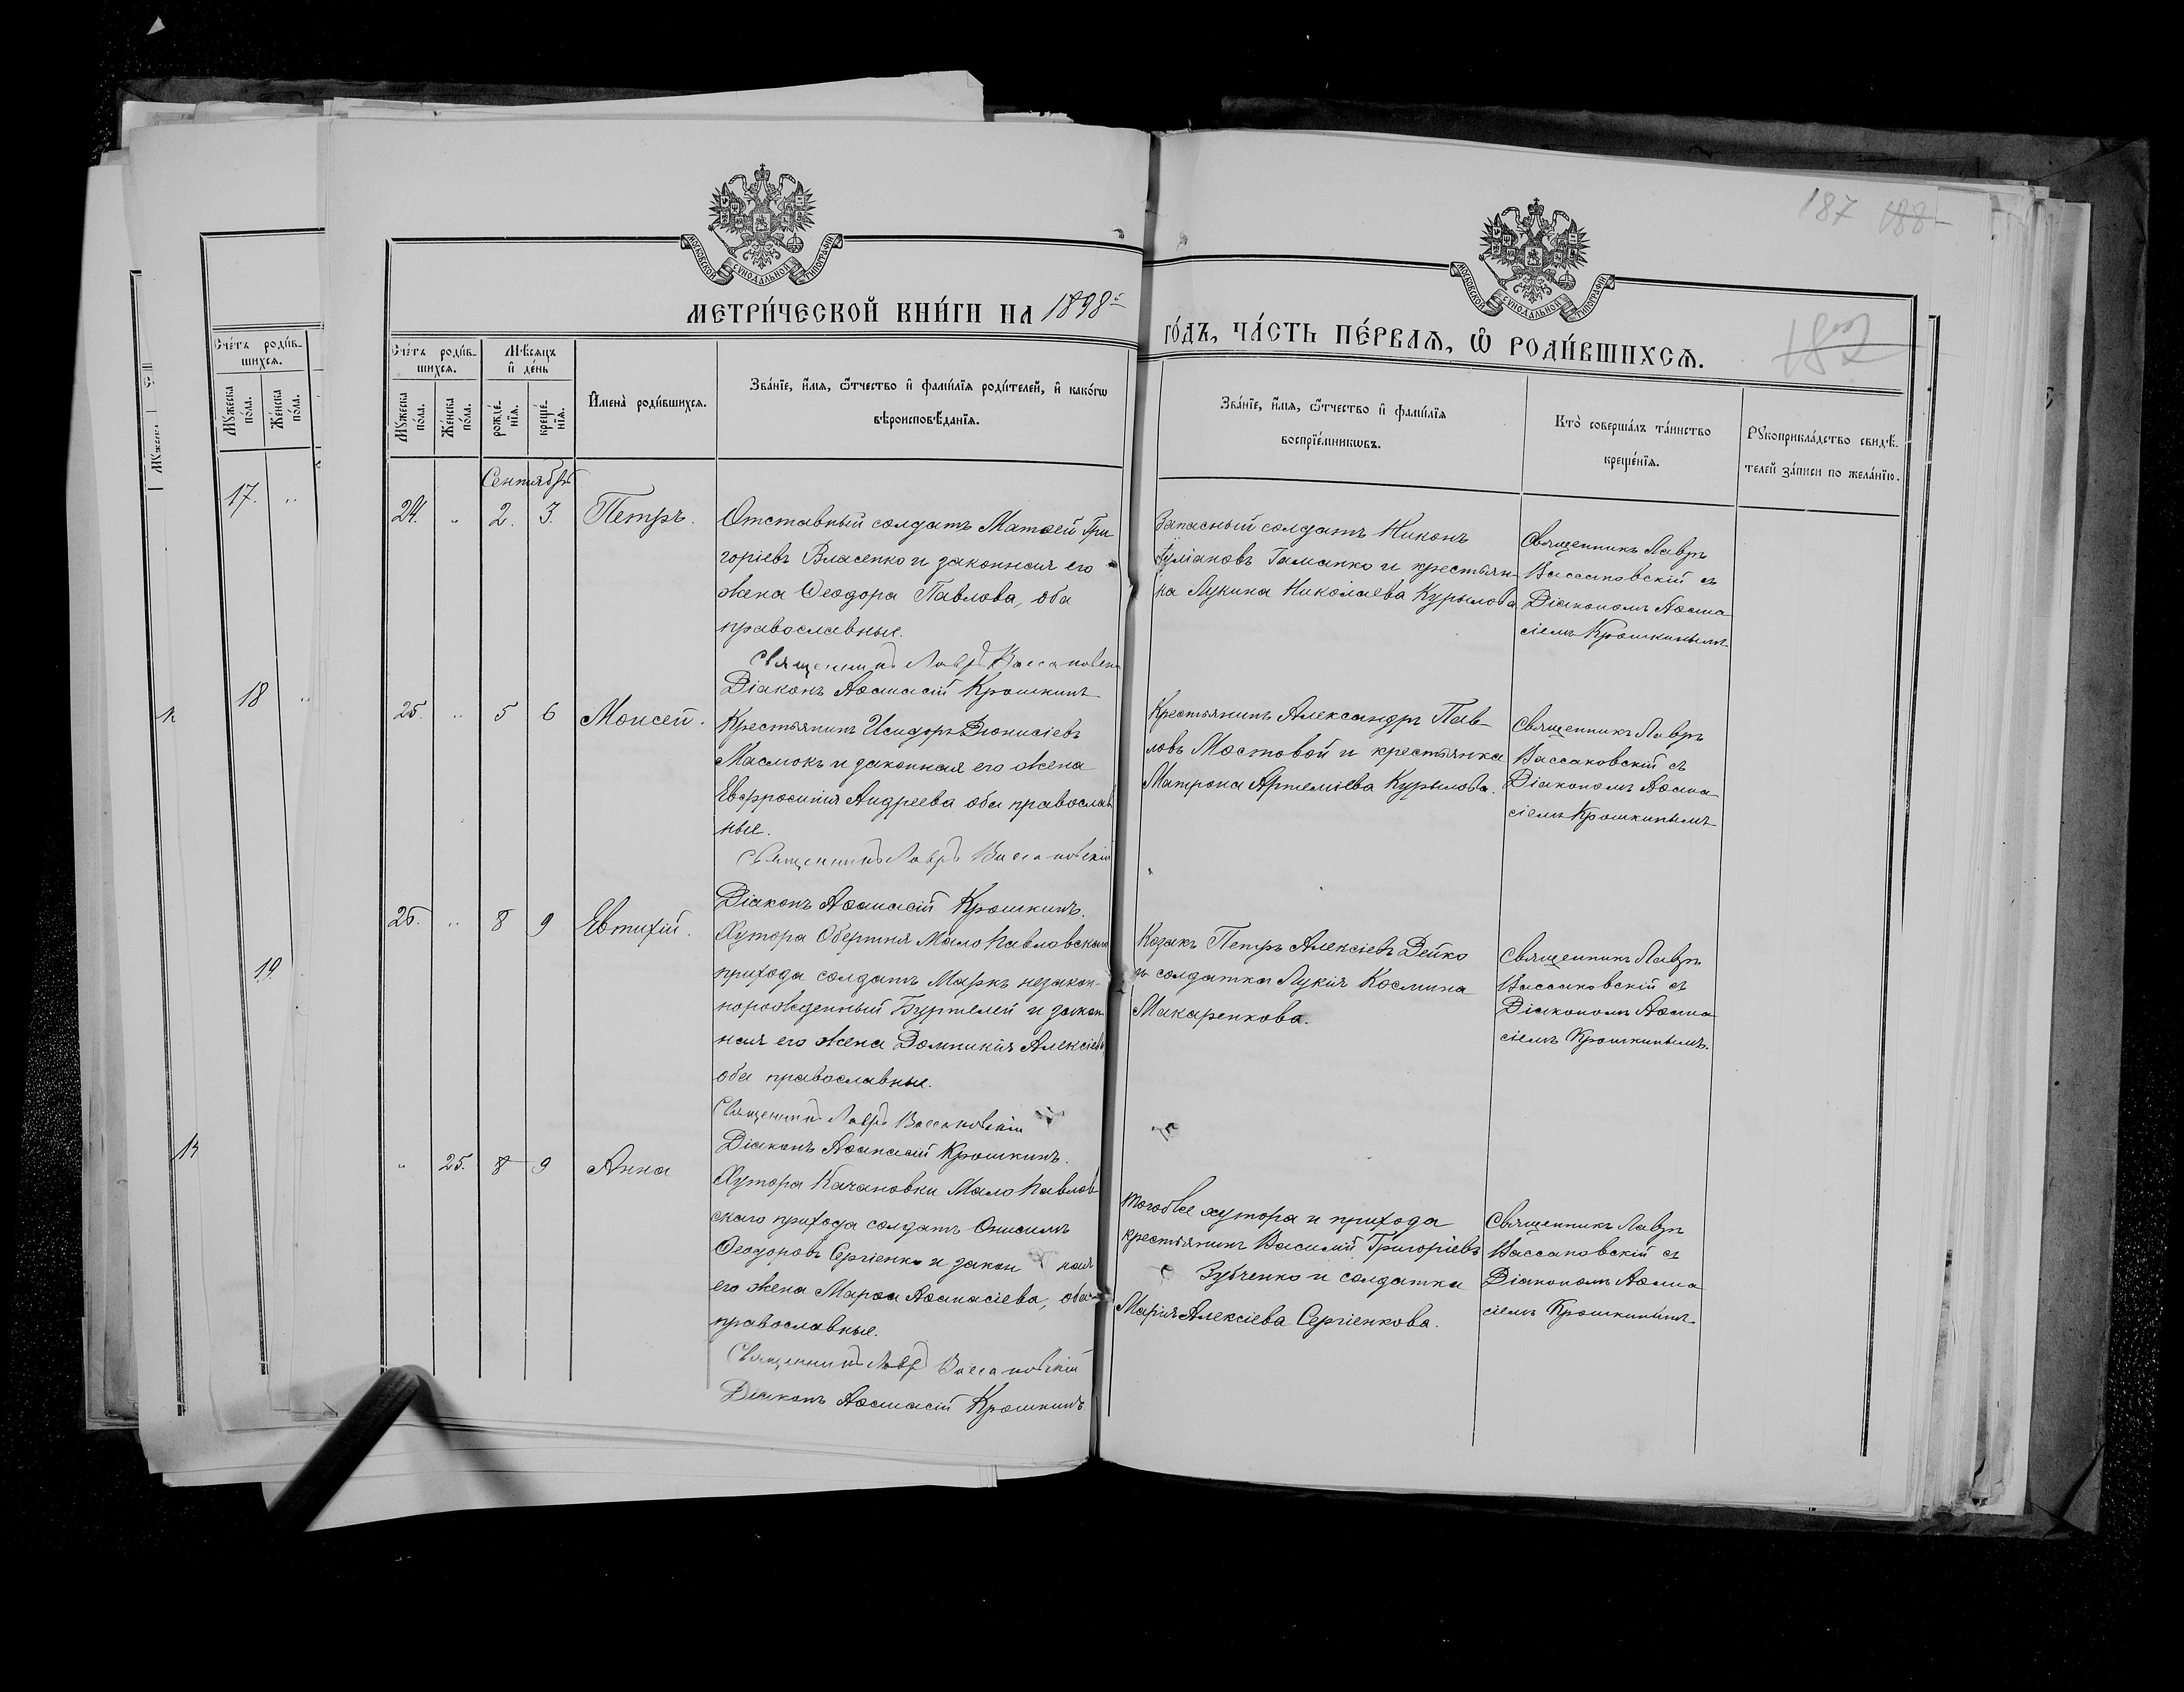 187 188
187
МОСКОВСКОЙ СѴНОДАЛЬНОЙ ТИПОГРАФІИ
МОСКОВСКОЙ СѴНОДАЛЬНОЙ ТИПОГРАФІИ
МЕТРИ́ЧЕСКОЙ КНИ́ГИ НА 1898й
ГО́ДЪ, ЧА́СТЬ ПЕ́РВАѦ, Ѽ РОДИ́ВШИХСѦ.
Сче́тъ роди́в-
шихсѧ.
Мꙋ́жеска
по́ла.
Же́нска
по́ла.
Сче́тъ роди́в-
шихсѧ.
Мꙋ́жеска
по́ла.
Же́нска
по́ла.
Мѣ́сѧцъ
и҆ де́нь
рожде́-
нїѧ.
креще́-
нїѧ.
И҆мена̀ роди́вшихсѧ.
Зва́нїе, и҆́мѧ, ѻ҆́тчество и҆ фами́лїѧ роди́телей, и҆ како́гѡ
вѣроисповѣ́данїѧ.
Зва́нїе, и҆́мѧ, ѻ҆́тчество и҆ фами́лїѧ
воспрїе́мникѡвъ.
Кто̀ соверша́лъ та́инство
креще́нїѧ.
Рꙋкоприкла́дство свидѣ́-
телей за́писи по жела́нїю.
17. "
18 "
19
Сентябрь
24. " 2. 3. Петръ.
Отставный солдатъ Матѳей Гри
горіевъ Власенко и законная его
жена Ѳеодора Павлова, оба
православные.
Священникъ Лавръ Вассаковскій
Діаконъ Аѳанасій Крошкинъ
Запасный солдатъ Никонъ
Іуліановъ Гаманко и крестьян-
ка Лукина Николаева Курылова
Священникъ Лавръ
Вассаковскій съ
Діакономъ Аѳана
сіемъ Крошкинымъ
25. " 5 6 Моисей.
Крестьянинъ Исидоръ Діонисіевъ
Маслюкъ и законная его жена
Евфросинія Андреева оба православ
ные.
Священникъ Лавръ Вассаковскій
Діаконъ Аѳанасій Крошкинъ.
Крестьянинъ Александръ Пав-
ловъ Мостовой и крестьянка
Матрона Артеміева Курылова.
Священникъ Лавръ
Вассаковскій съ
Діакономъ Аѳана
сіемъ Крошкинымъ
26. " 8 9 Евтихій.
Хутора Обертня Мало Павловскаго
прихода солдатъ Маркъ незакон-
норожденный Буртелей и закон
ная его жена Домникія Алексіева
оба православные.
Священникъ Лавръ Вассаковскій
Діаконъ Аѳанасій Крошкинъ.
Козакъ Петръ Алексіевъ Дейко
и солдатка Лукія Космина
Макаренкова.
Священникъ Лавръ
Вассаковскій съ
Діакономъ Аѳана
сіемъ Крошкинымъ.
" 25. 8 9 Анна
Хутора Качановки Мало Павлов
скаго прихода солдатъ Онисимъ
Ѳеодоровъ Сергіенко и закон ная
его жена Марѳа Аѳанасіева, оба
православные.
Священникъ Лавръ Вассаковскій
Діаконъ Аѳанасій Крошкинъ.
Тогоже хутора и прихода
крестьянинъ Василій Григоріевъ
Зубченко и солдатка
Марія Алексіева Сергіенкова.
Священникъ Лавръ
Вассаковскій съ
Діакономъ Аѳана
сіемъ Крошкинымъ